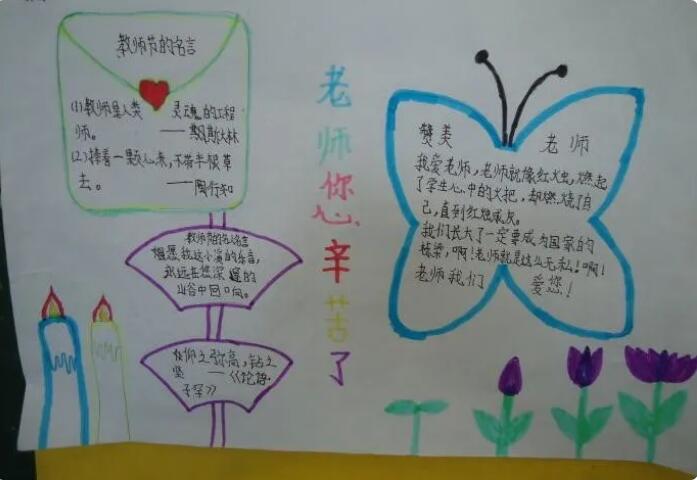 教师节的名言
(1)教师是人类 灵魂的工程
师。 ——斯大林
(2)捧着一颗心来,不带半根草
去。 ——陶行知
教师节的名言
愿我这小溪的乐音,
永远在您深邃的
山谷中回响。
仰之弥高,钻之
坚 ——《论语·
子罕》
老师您辛苦了
赞美 老师
我爱老师,老师就像红火虫,燃起
了学生心中的火把,却燃烧了自
己,直到红烛成灰。
我们长大了一定要成为国家的
栋梁,啊!老师就是这么无私!啊!
老师我们 爱您!